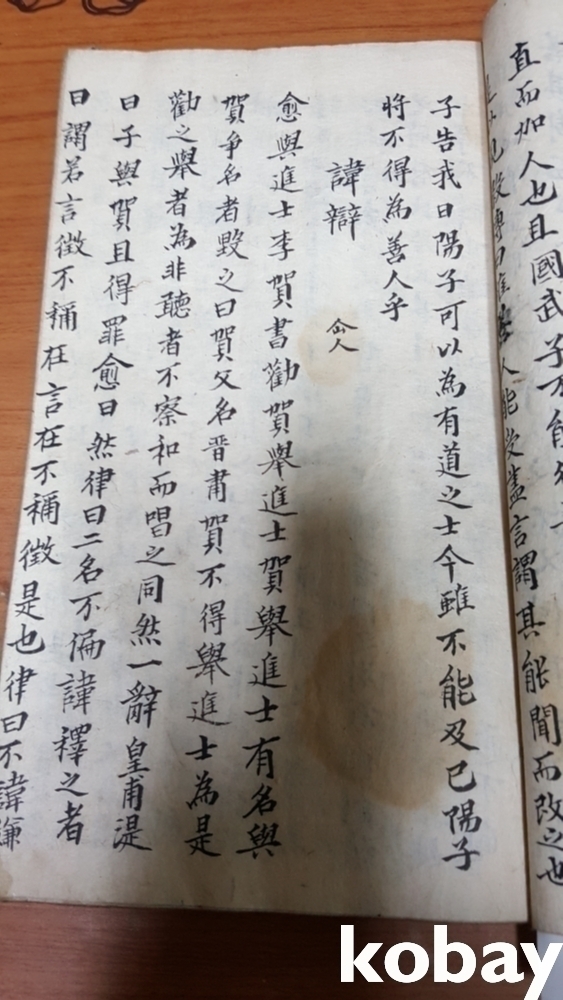 直而加人也且國武子不能
人能受盡言謂其能聞而改之也
子告我曰陽子可以為有道之士今雖不能及已陽子
將不得為善人乎
諱辯
愈與進士李賀書勸賀舉進士賀舉進士有名與
賀爭名者毀之曰賀父名晋肅賀不得舉進士為是
勸之舉者為非聽者不察和而唱之同然一辭皇甫湜
曰子與賀且得罪愈曰然律曰二名不偏諱釋之者
曰謂若言徵不稱在言在不稱徵是也律曰不諱嫌
kobay